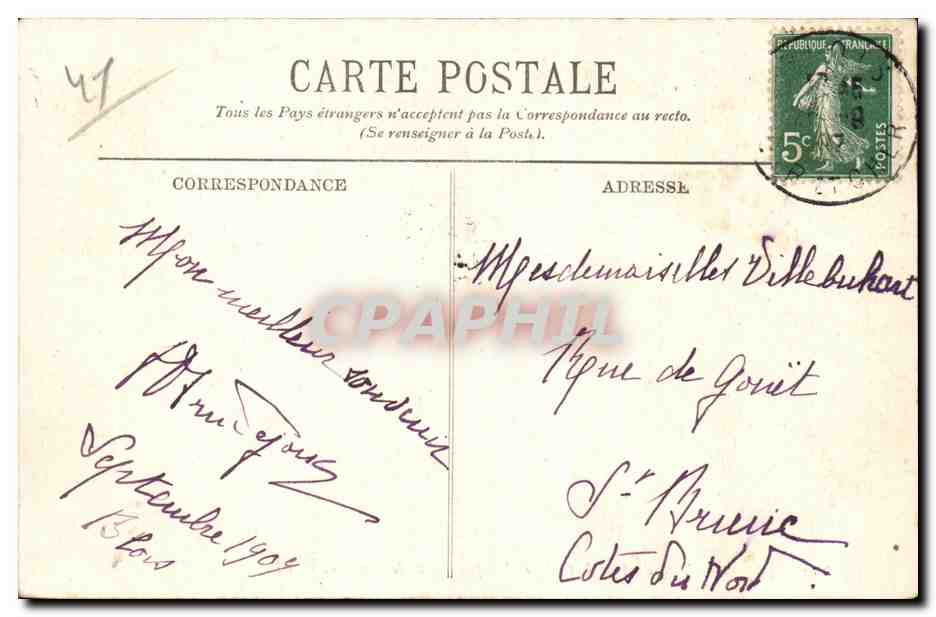 41
CARTE POSTALE
Tous les Pays étrangers n'acceptent pas la Correspondance au recto.
(Se renseigner à la Poste).
REPUBLIQUE FRANÇAISE
5c
POSTES
CORRESPONDANCE
ADRESSE
Mon meilleur souvenir
Septembre 1907
Blois
Mesdemoiselles
Rue de Gouët
St Brieuc
Cotes du Nord.
CPAPHIL